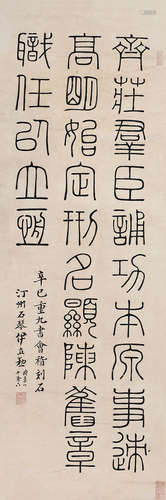 齊莊羣臣誦功本原事迹
高明始定刑名顯陳舊章
職任以立恆
辛巳重九書會稽刻石
汀州石琴伊立勳